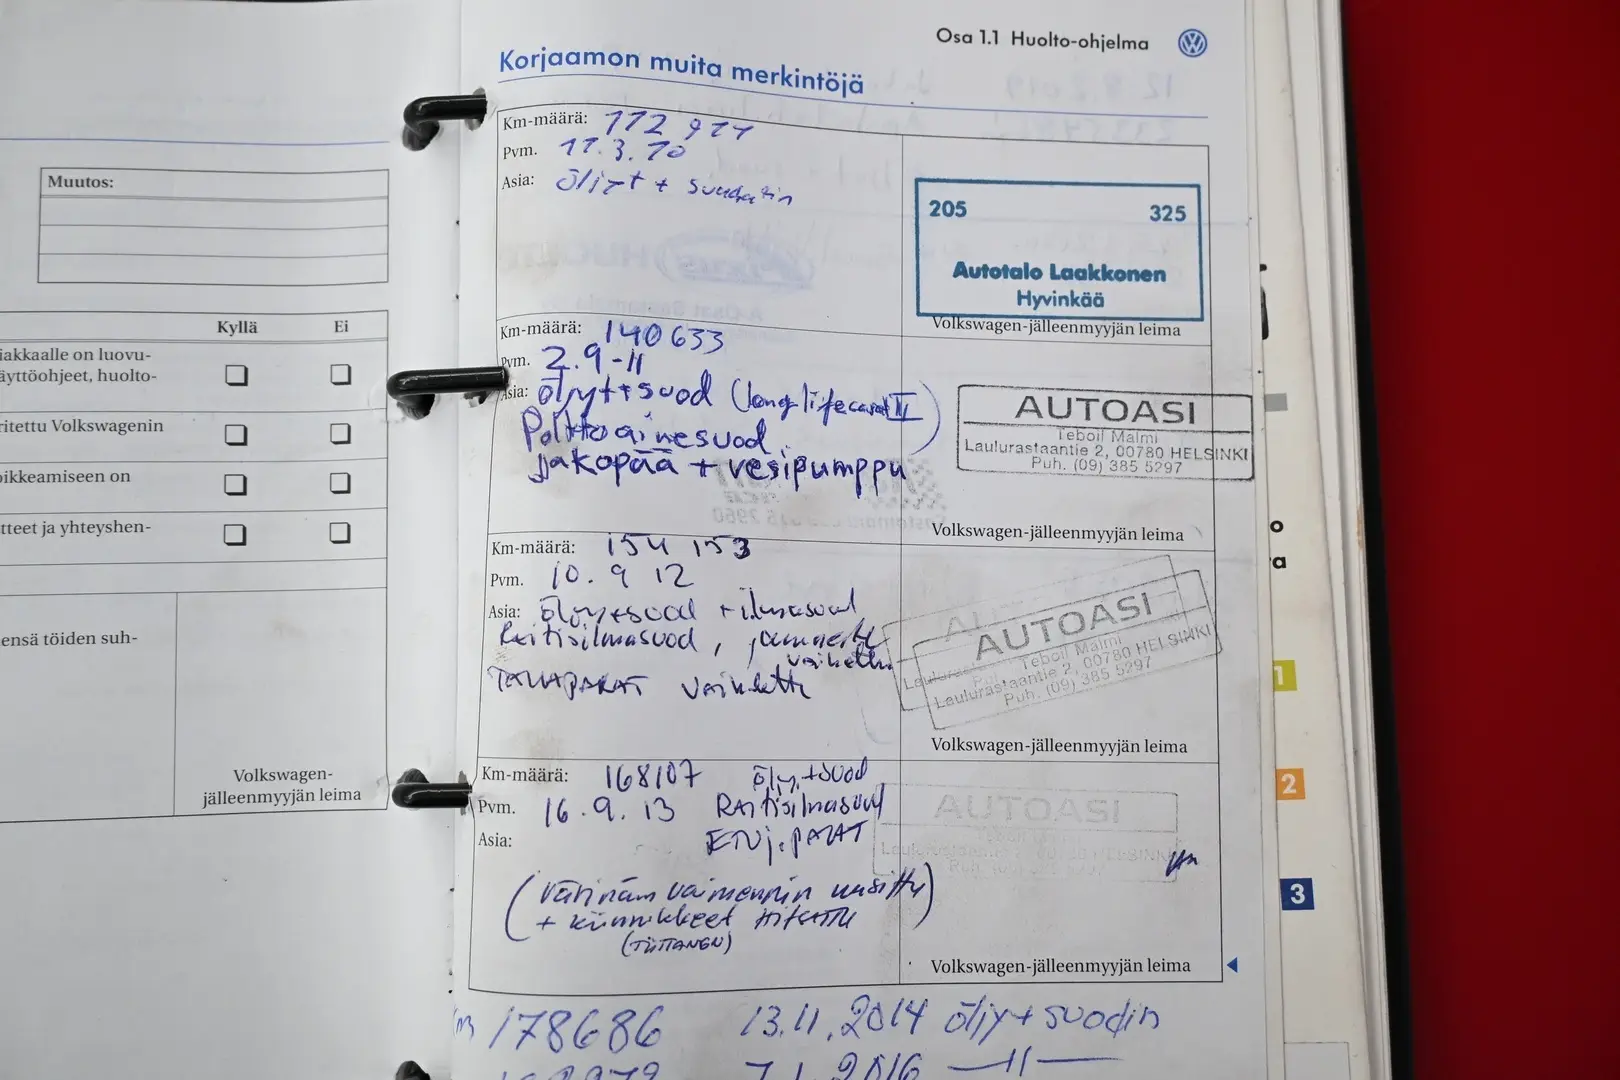 Osa 1.1 Huolto-ohjelma
Korjaamon muita merkintöjä
Muutos:
Kyllä
Ei
iakkaalle on luovu-
äyttöohjeet, huolto-
ritettu Volkswagenin
oikkeamiseen on
tteet ja yhteyshen-
ensä töiden suh-
Volkswagen-
jälleenmyyjän leima
Km-määrä: 112 977
Pvm. 17.3.10
Asia: öljyt + suodatin
205 325
Autotalo Laakkonen
Hyvinkää
Volkswagen-jälleenmyyjän leima
Km-määrä: 140633
Pvm. 2.9-11
Asia: öljyt+suod (longlife III)
Polttoainesuod.
jakopää + vesipumppu
AUTOASI
Teboil Malmi
Laulurastaantie 2, 00780 HELSINKI
Puh. (09) 385 5297
Volkswagen-jälleenmyyjän leima
Km-määrä: 154 153
Pvm. 10. 9 12
Asia: öljyt+suod + ilmasuod
Raitisilmasuod, jarruneste
vaihettu
TAKAPALAT vaihdettu
AUTOASI
Teboil Malmi
Laulurastaantie 2, 00780 HELSINKI
Puh. (09) 385 5297
Volkswagen-jälleenmyyjän leima
Km-määrä: 168107 öljyt+suod
Pvm. 16.9.13 Raitisilmasuod
Asia: ETUj.PALAT
(värinän vaimennin uusittu
+ kiinnikkeet HITSATTU
AUTOASI
Volkswagen-jälleenmyyjän leima
178686 13.11.2014 öljyt suodin
7.1.2016 —11—
o
a
1
2
3